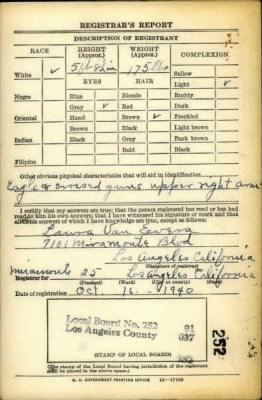 REGISTRAR'S REPORT
DESCRIPTION OF REGISTRANT
RACE HEIGHT (Approx.) WEIGHT (Approx.) COMPLEXION
White ✓ 5 ft 8 in 175 lbs Sallow
EYES HAIR Light ✓
Negro Blue Blonde Ruddy
Gray ✓ Red Dark
Oriental Hazel Brown ✓ Freckled
Brown Black Light brown
Indian Black Gray Dark brown
Bald Black
Filipino
Other obvious physical characteristics that will aid in identification
Eagle & crossed guns upper right arm
I certify that my answers are true; that the person registered has read or has had read to him his own answers; that I have witnessed his signature or mark and that all of his answers of which I have knowledge are true, except as follows:
Laura Van
7101 Miramonte Blvd
Los Angeles California
(Signature of registrar)
Registrar for Miramonte 25 Los Angeles California
(Precinct) (Ward) (City or county) (State)
Date of registration Oct. 16. 1940
Local Board No. 252 91
Los Angeles County 037
252
STAMP OF LOCAL BOARD
(The stamp of the Local Board having jurisdiction of the registrant shall be placed in the above space.)
U. S. GOVERNMENT PRINTING OFFICE 16—17105
252